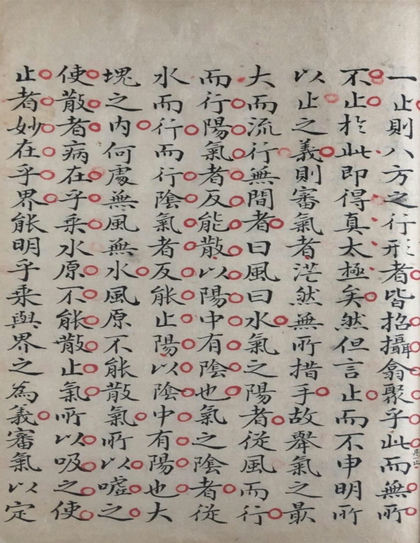 一止則八方之行形者皆招攝翕聚乎此而無所
不止於此即得真太極矣然但言止而不申明所
以止之義則審氣者茫然無所措手故舉氣之最
大而流行無間者曰風曰水氣之陽者從風而行
而行陽氣者反能散以陽中有陰也氣之陰者從
水而行而行陰氣者反能止陽以陰中有陽也大
塊之內何處無風無水風原不能散氣所以噓之
使散者病在乎乘水原不能散止氣所以吸之使
止者妙在乎界能明乎乘與界之為義審氣以定